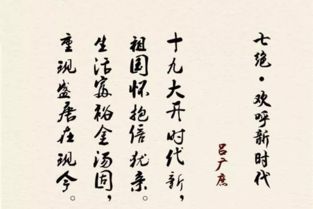 七绝·欢呼新时代
吕广庶
十九大开时代新，
祖国怀抱倍犹亲。
生活富裕金汤固，
重现盛唐在现今。